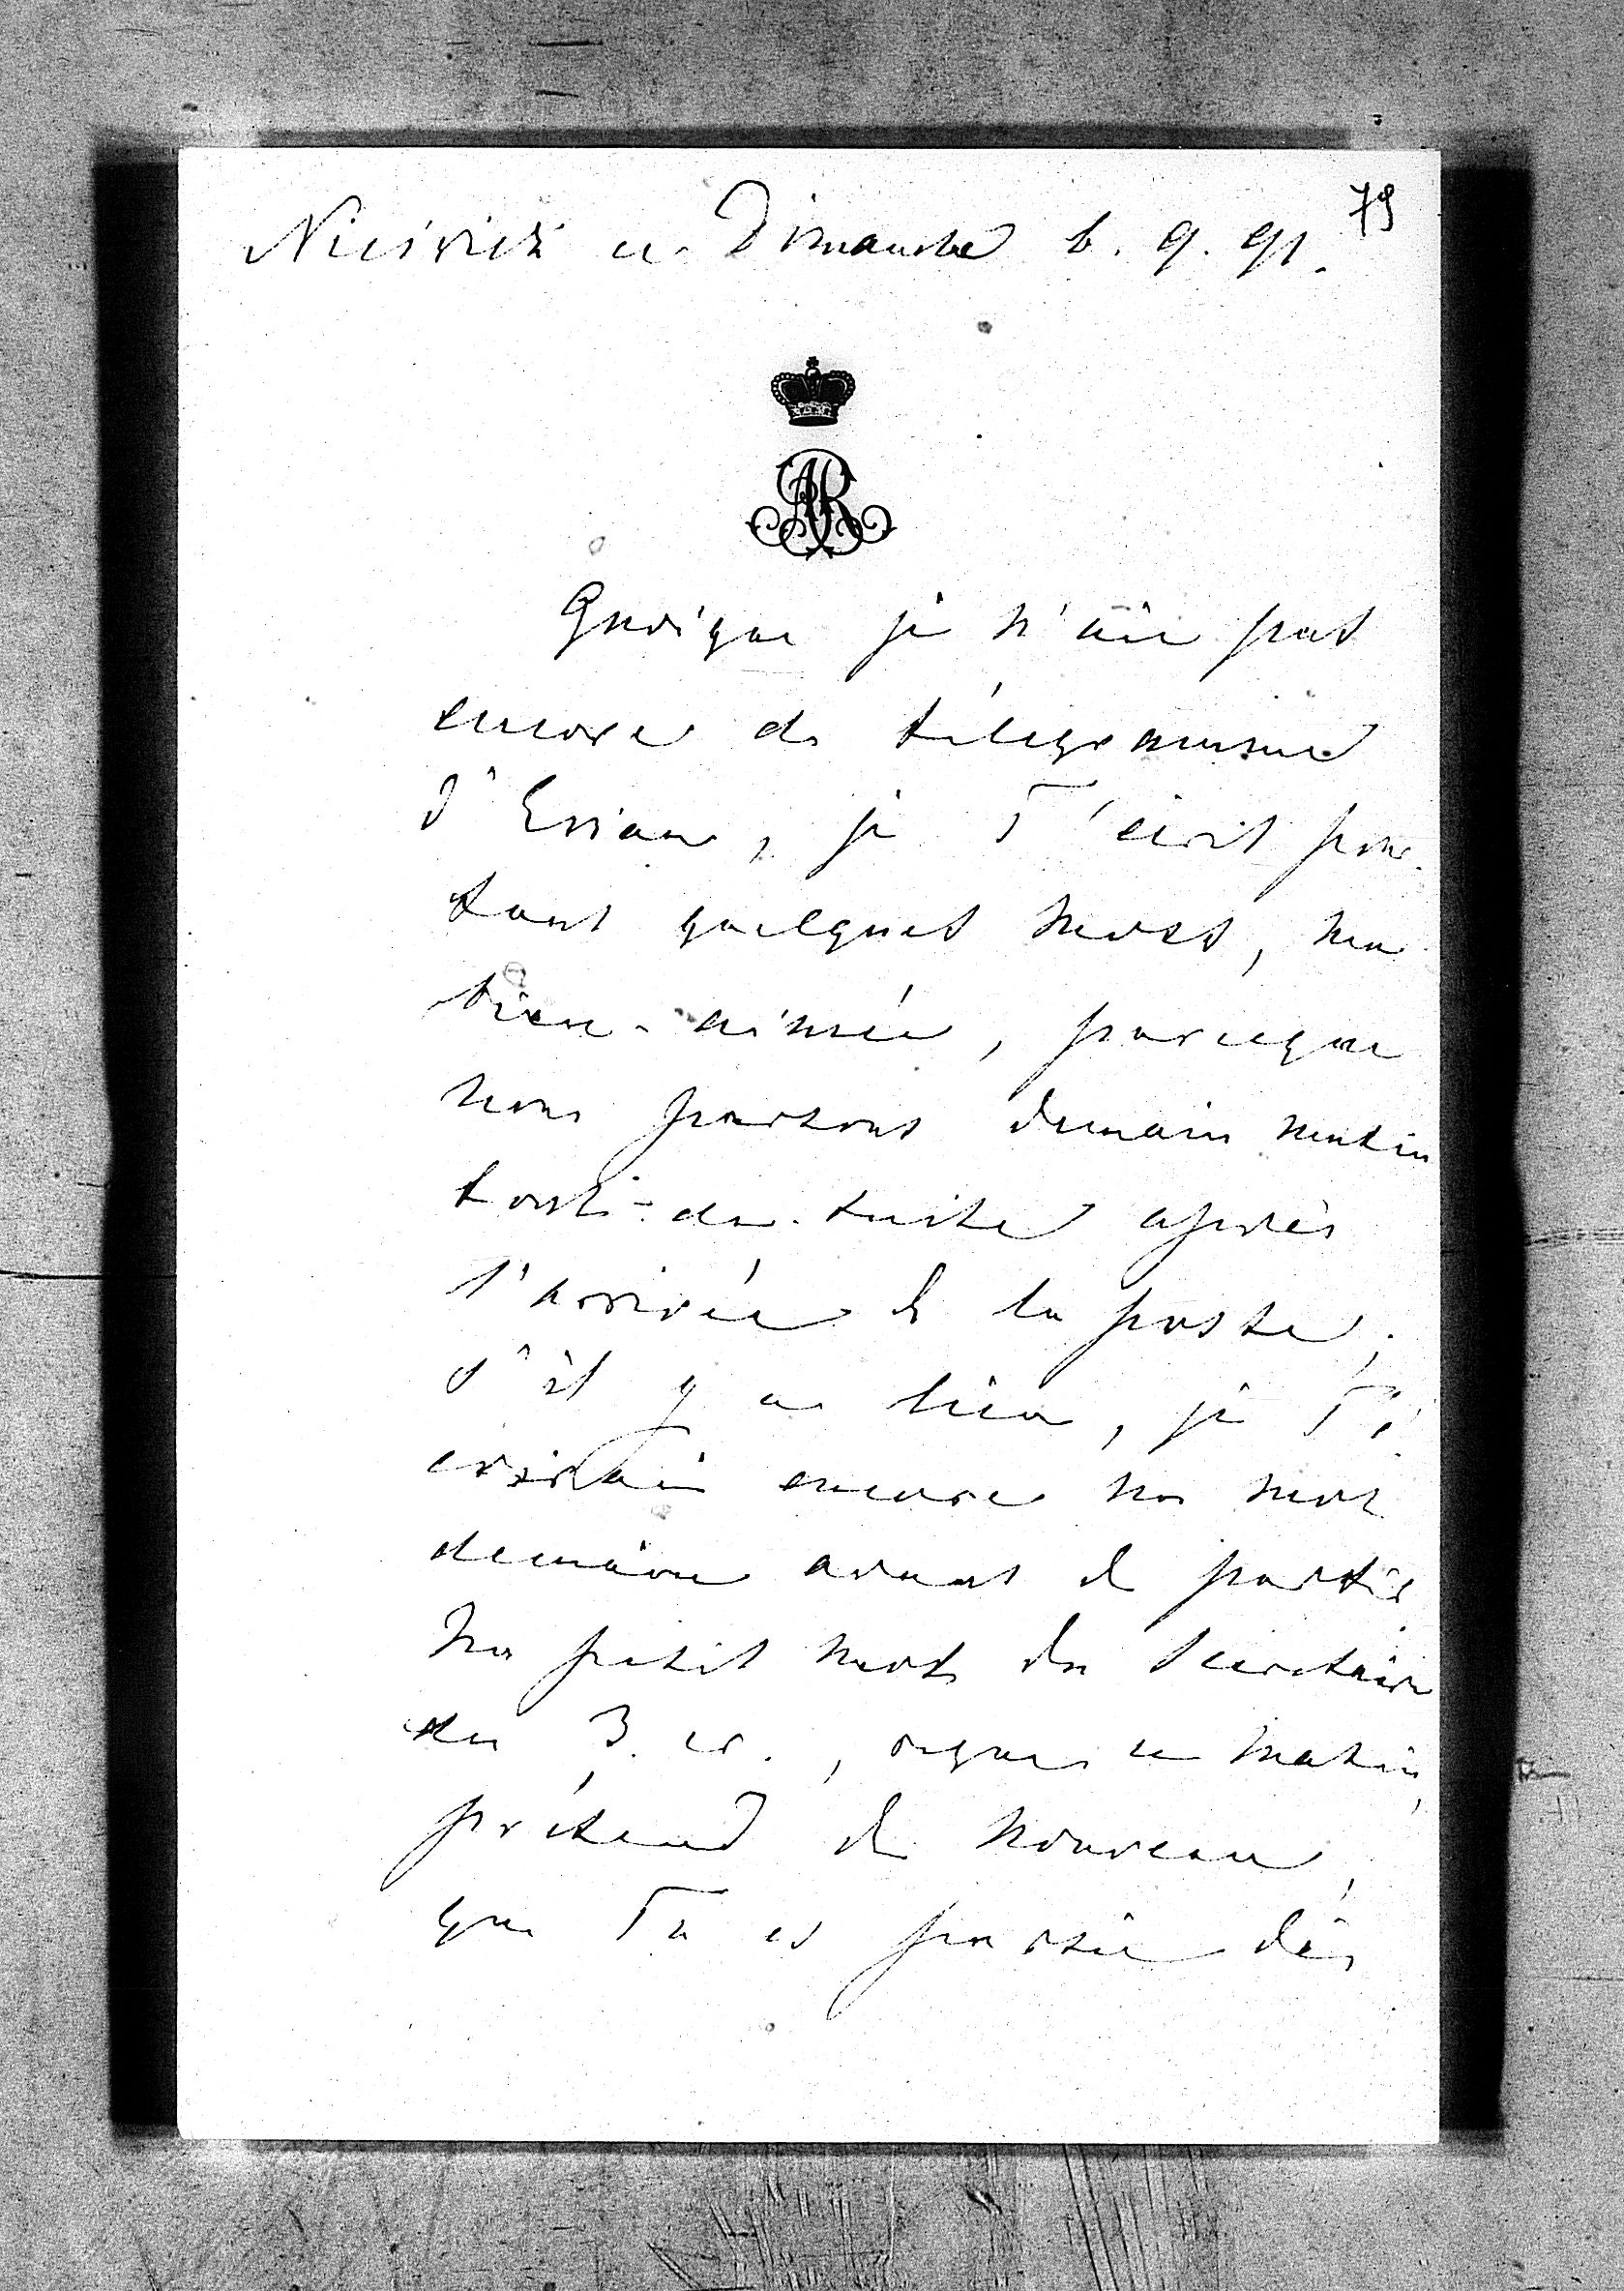 79
Niesvież ce Dimanche 6. 9. 91.
AR
Quoique je n'aie pas
encore de télégramme
d'Evian, je T'écrit pour-
tant quelques mots, ma
bien-aimée, parceque
nous partons demain matin
tout-de-suite après
l'arrivée de la poste;
s'il y a lieu, je T'é-
crirais encore un mot
demain avant de partir.
Un petit mot du Secrétaire
du 3. cr., reçu ce matin,
prétend de nouveau,
que Tu es partie dès